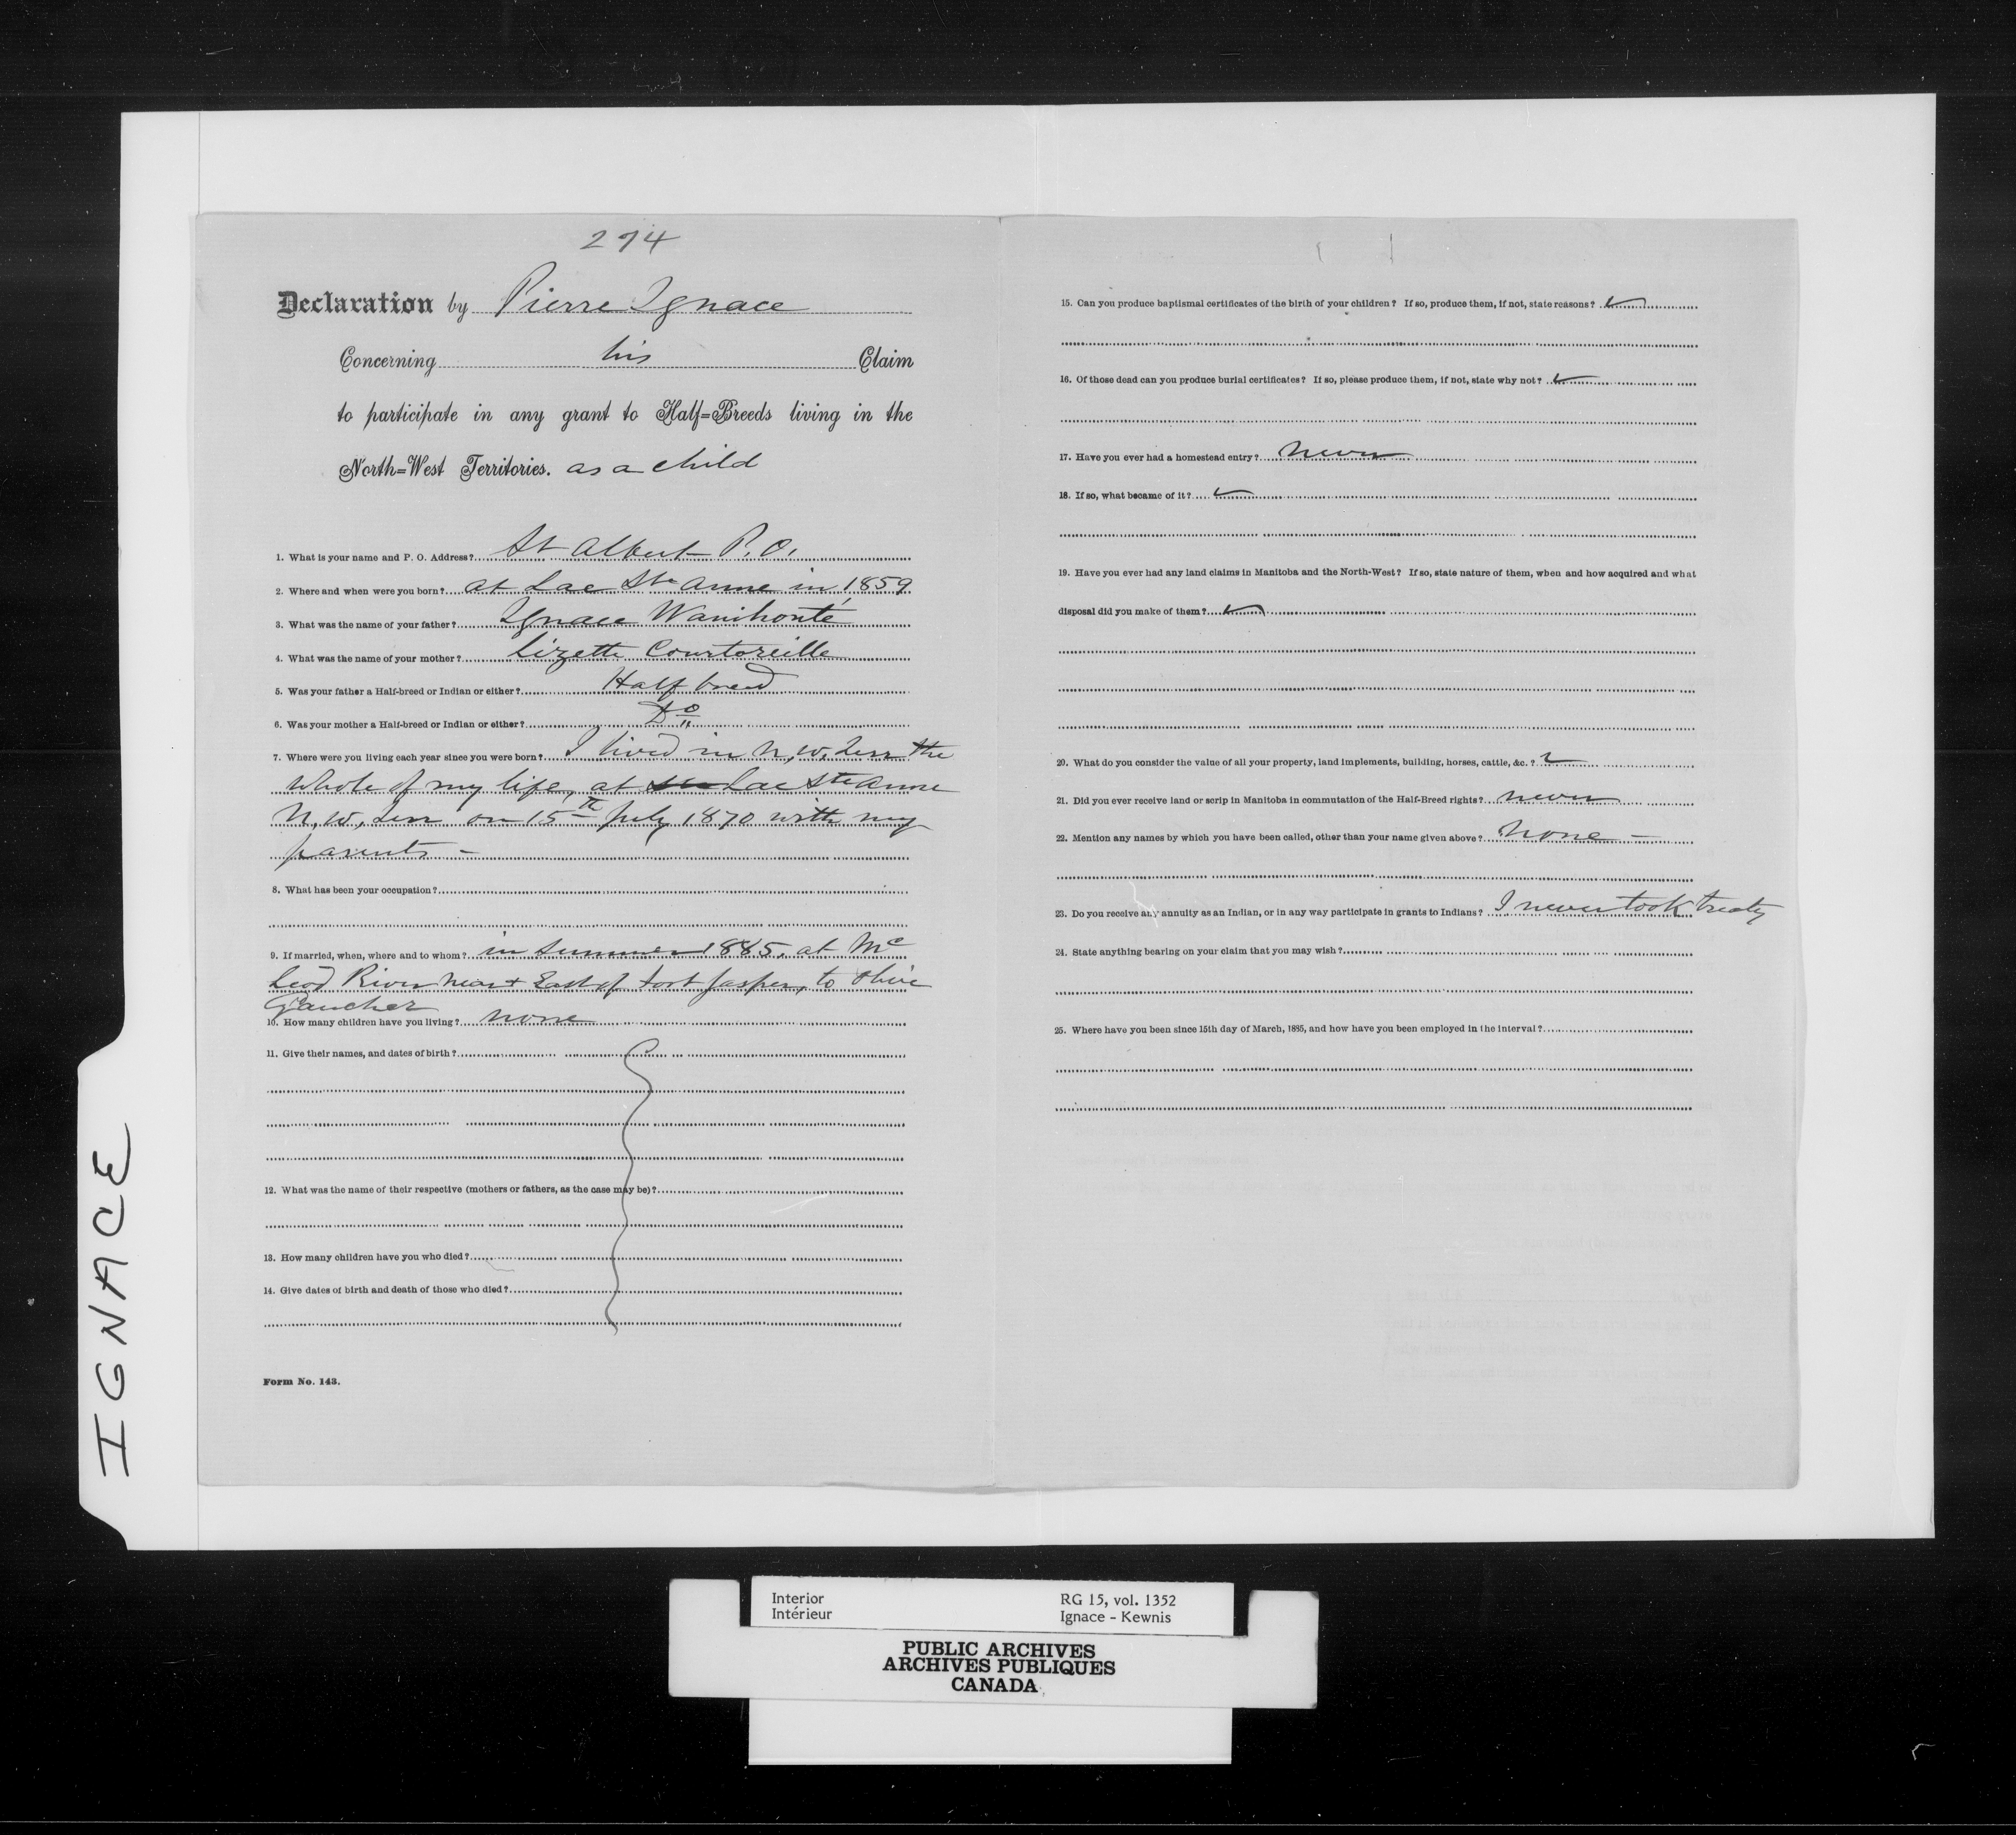 274
Declaration by Pierre Ignace
Concerning his Claim
to participate in any grant to Half=Breeds living in the
North=West Territories. as a child
1. What is your name and P. O. Address? St Albert P.O.
2. Where and when were you born? at Lac Ste Anne in 1859
3. What was the name of your father? Ignace Wanihonté
4. What was the name of your mother? Lizette Courtoreille
5. Was your father a Half-breed or Indian or either? Half breed
6. Was your mother a Half-breed or Indian or either? Do
7. Where were you living each year since you were born? I lived in N.W. Terr the
whole of my life, at Lac Ste Anne
N.W. Terr on 15th July 1870 with my
parents –
8. What has been your occupation?
9. If married, when, where and to whom? in summer 1885, at Mc
Leod River near & East of Fort Jasper, to
Gaucher
10. How many children have you living? none
11. Give their names, and dates of birth?
12. What was the name of their respective (mothers or fathers, as the case may be)?
13. How many children have you who died?
14. Give dates of birth and death of those who died?
Form No. 143.
15. Can you produce baptismal certificates of the birth of your children? If so, produce them, if not, state reasons?
16. Of those dead can you produce burial certificates? If so, please produce them, if not, state why not?
17. Have you ever had a homestead entry? never
18. If so, what became of it?
19. Have you ever had any land claims in Manitoba and the North-West? If so, state nature of them, when and how acquired and what
disposal did you make of them?
20. What do you consider the value of all your property, land implements, building, horses, cattle, &c.?
21. Did you ever receive land or scrip in Manitoba in commutation of the Half-Breed rights? never
22. Mention any names by which you have been called, other than your name given above? None –
23. Do you receive any annuity as an Indian, or in any way participate in grants to Indians? I never took treaty
24. State anything bearing on your claim that you may wish?
25. Where have you been since 15th day of March, 1885, and how have you been employed in the interval?
IGNACE
Interior RG 15, vol. 1352
Intérieur Ignace - Kewnis
PUBLIC ARCHIVES
ARCHIVES PUBLIQUES
CANADA